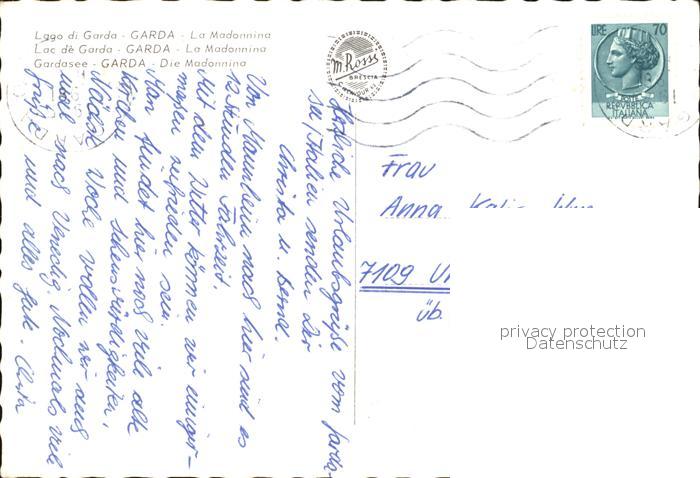 Lago di Garda - GARDA - La Madonnina
Lac dè Garda - GARDA - La Madonnina
Gardasee - GARDA - Die Madonnina
M. Rossi
BRESCIA
LIRE 70
REPVBBLICA
ITALIANA
Herzliche Urlaubsgrüße vom Garda-
see/Italien senden Dir
Christa u. Bernd.
Von Mannheim nach hier sind es
13 Stunden Fahrzeit.
Mit dem Wetter können wir einiger-
maßen zufrieden sein.
Man findet hier noch viele alte
Kirchen und Sehenswürdigkeiten.
Nächste Woche wollen wir auch
mal nach Venedig. Nochmals viele
Grüße und alles Gute. Christa
Frau
Anna
7109
üb.
privacy protection
Datenschutz